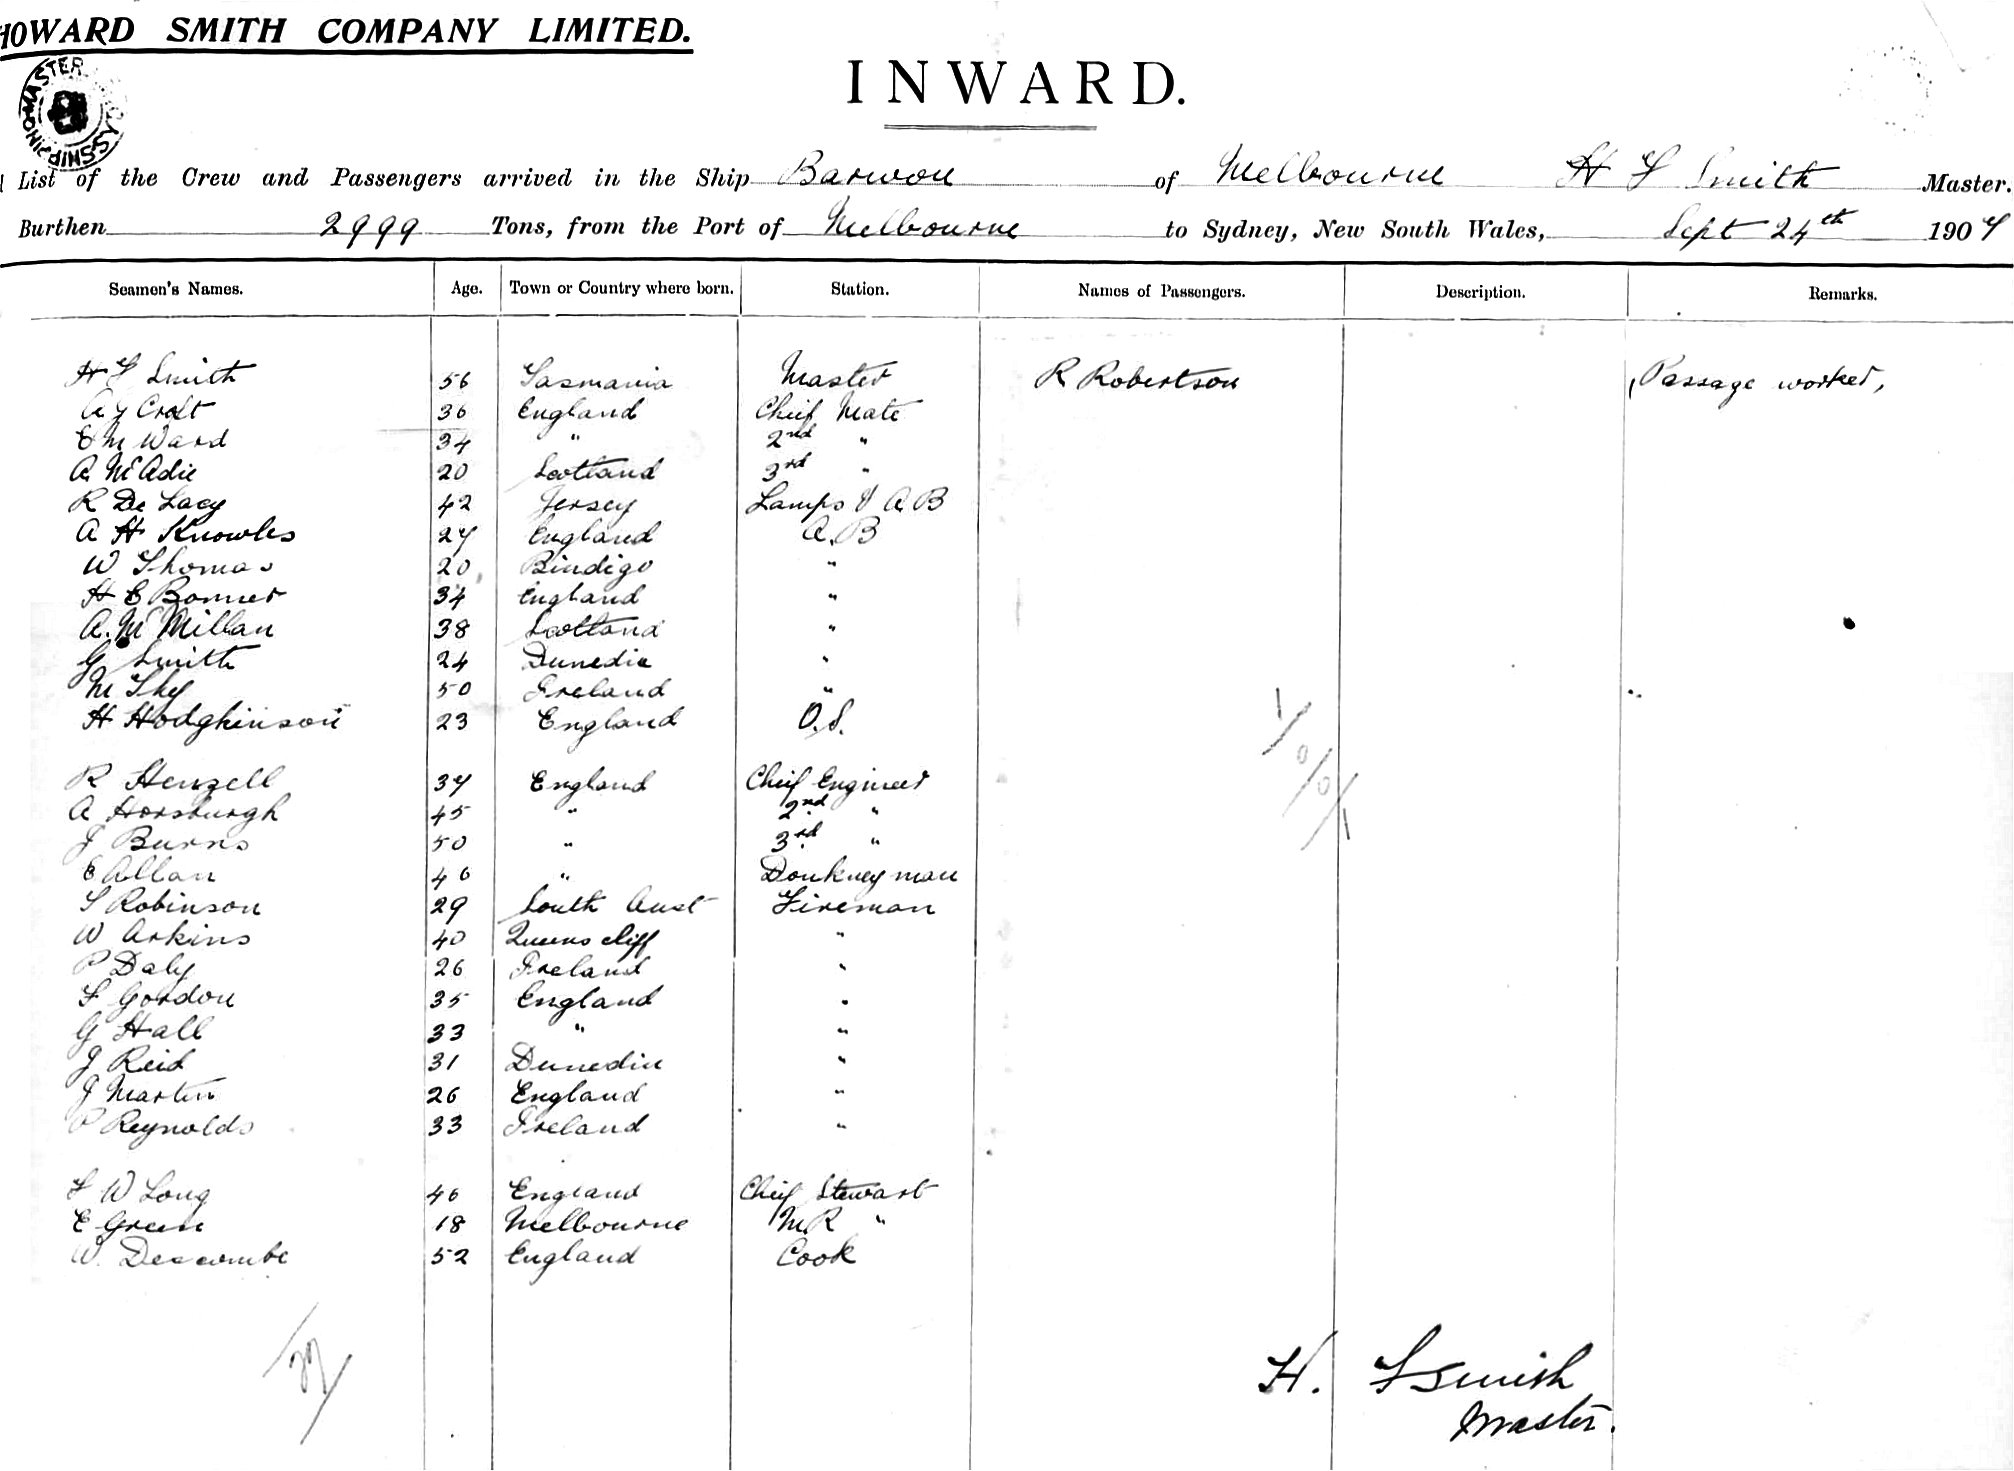 HOWARD SMITH COMPANY LIMITED.
INWARD.
List of the Crew and Passengers arrived in the Ship Barwon of Melbourne H F Smith Master.
Burthen 2999 Tons, from the Port of Melbourne to Sydney, New South Wales, Sept 24th 1907
Seamen's Names. Age. Town or Country where born. Station. Names of Passengers. Description. Remarks.
H F Smith 56 Tasmania Master R Robertson Passage worker,
A G Croft 36 England Chief Mate
E M Ward 34 " 2nd "
A McAdie 20 Scotland 3rd "
R De Lacy 42 Jersey Lamps & A B
A H Knowles 27 England A.B
W Thomas 20 Bindigo "
H E Bonner 34 England "
A. McMillan 38 Scotland "
G Smith 24 Dunedin "
M 50 Ireland "
H Hodgkinson 23 England O.S.
R Henzell 37 England Chief Engineer
A Horsburgh 45 " 2nd "
J Burns 50 " 3rd "
E Allan 46 " Donkneyman
S Robinson 29 South Aust Fireman
W Arkins 40 Queens cliff "
P Daly 26 Ireland "
F Gordon 35 England "
G Hall 33 " "
J Reid 31 Dunedin "
J Martin 26 England "
P Reynolds 33 Ireland "
F W Long 46 England Chief Stewart
E Green 18 Melbourne M R "
W. Descombe 52 England Cook
27
H. F Smith
Master.